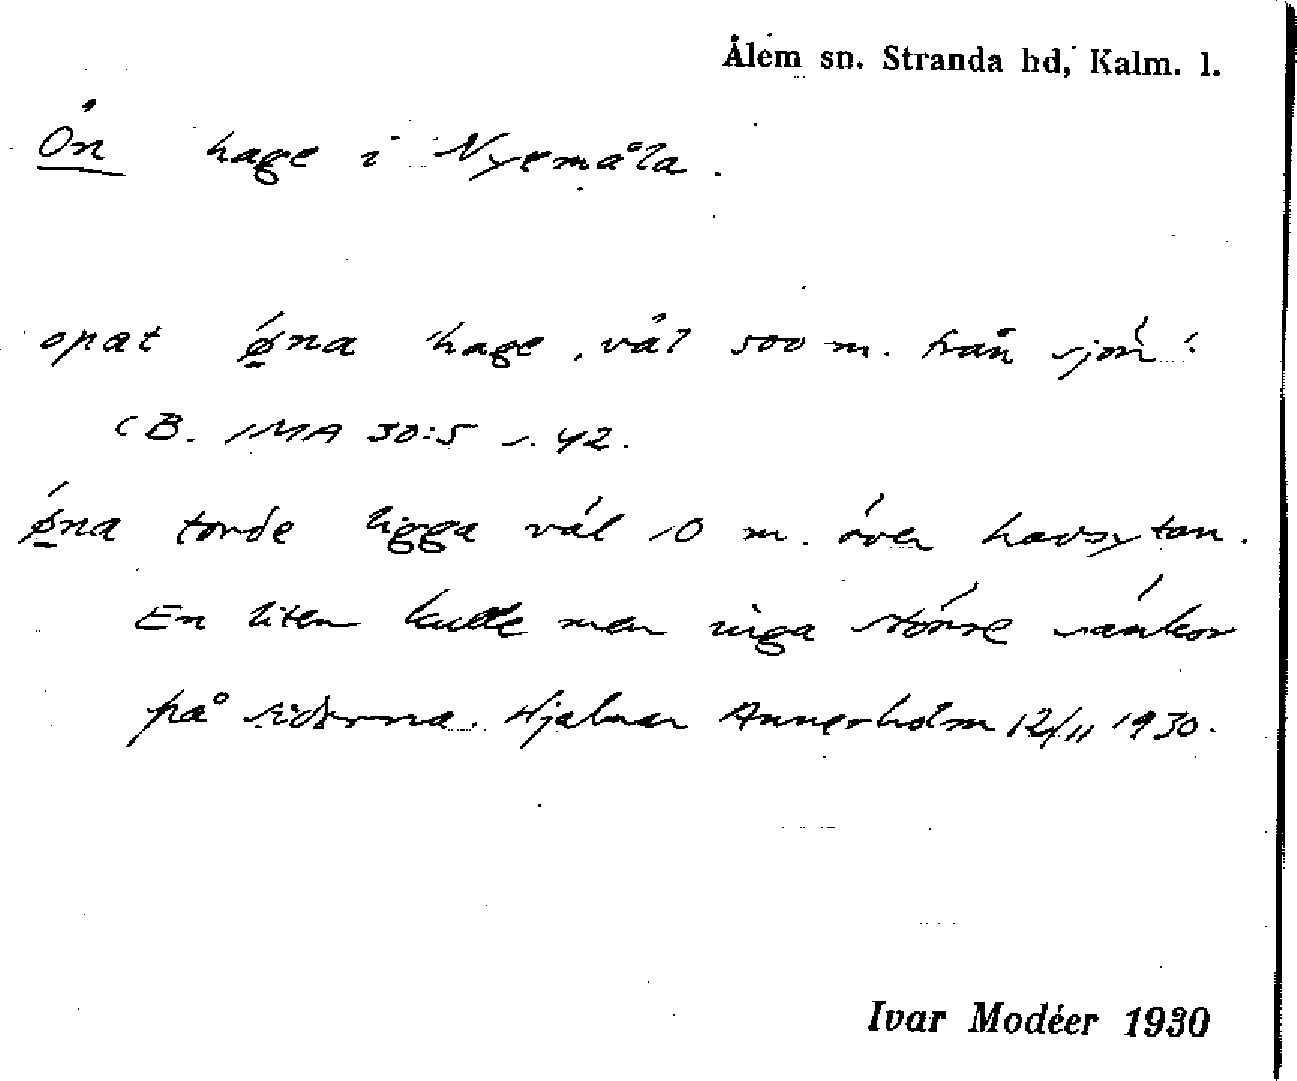 Ålem sn. Stranda hd, Kalm. l.
Ön hage i Nyemåla.
opat ǿ̱na hage, väl 500 m. från sjön:
CB. IMA 30:5 s. 42.
ǿ̱na torde ligga väl 10 m. över havsytan.
En liten kulle men inga större sänkor
på sidorna. Hjalmar Annerholm 12/11 1930.
Ivar Modéer 1930